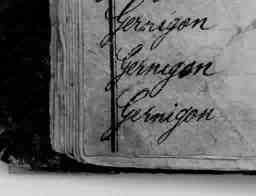 Gernigon
Gernigon
Gernigon